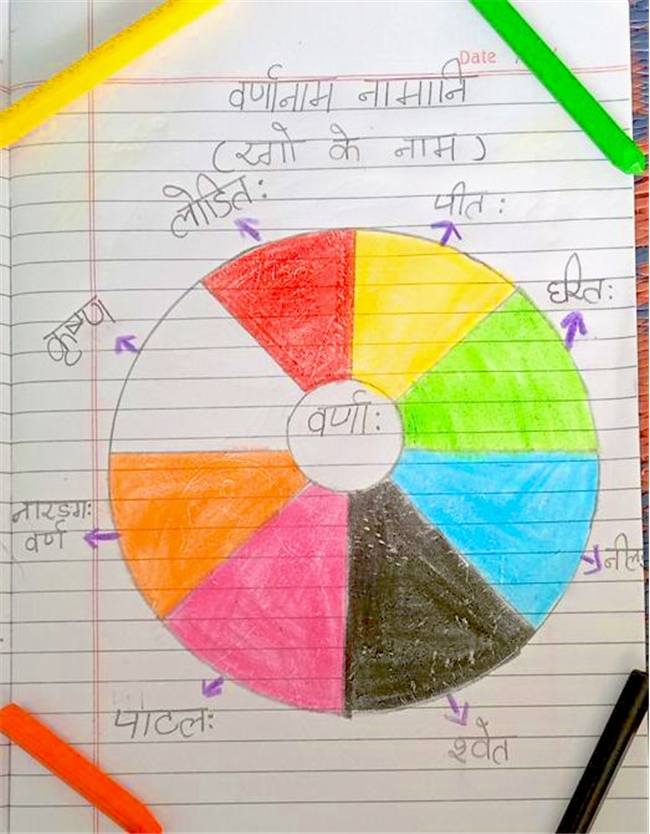 Date
वर्णानाम नामानि
(रगो के नाम)
लोडित:
पीत:
हरित:
कृष्ण
वर्णा:
नारङग:
वर्ण
नील
पाटल:
श्वेत